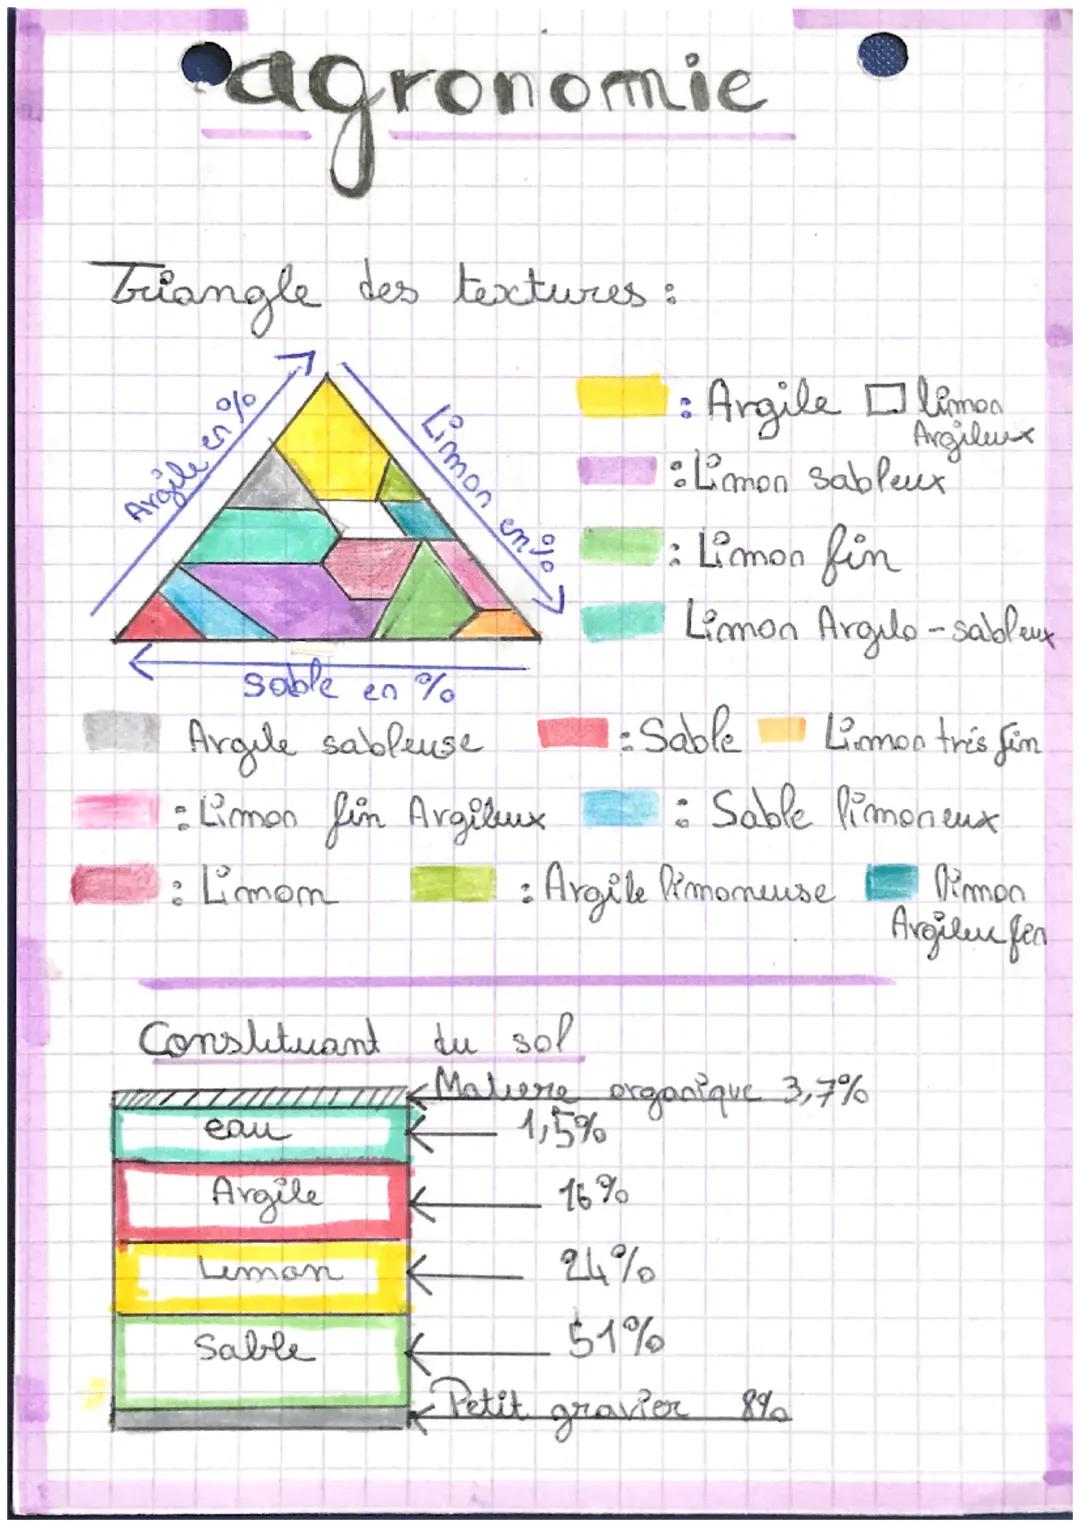 agronomie
Triangle des textures :
Argile en %
Limon en %
Sable en %
: Argile
limon
Argileux
: Limon sableux
: Limon fin
Limon Argilo-sableux
Argile sableuse
: Sable
Limon très fin
: Limon fin Argileux
: Sable limoneux
: Limon
: Argile limoneuse
limon
Argileu fin
Constituant du sol
Matiere organique 3,7%
eau 1,5%
Argile 16%
Limon 24%
Sable 51%
Petit gravier 8%